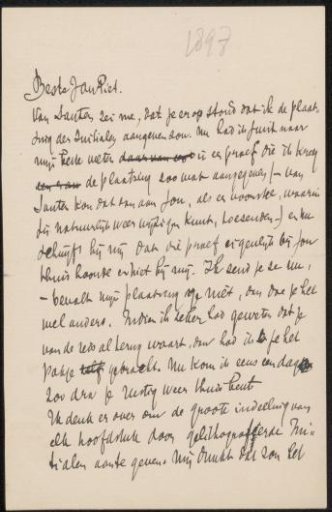 1897
Beste Jan Piet.
Van Santen zei me, dat je er op stond dat ik de plaats
ing der Initialen aangeven zou. Nu had ik juist naar
mijn beste weten daarvan op die proef die ik kreeg
de plaatsing zoo wat aangegeven (van
Santen kon dat dan aan jou, als er voorste, waarin
jij natuurlijk weer wijzigen kunt, toesenden) en nu
schrijft hij mij dat die proef eigenlijk bij jou
thuis hoorde en niet bij mij. Ik send je ze nu,
- bevalt mijn plaatsing je niet, dan doe je het
wel anders. Indien ik zeker had geweten dat je
van de reis al terug waart, dan had ik je het
pakje zelf gebracht. Nu kom ik eens een dag
zoo dra je rustig weer thuis bent
Ik denk er over om de groote indeeling van
elk hoofdstuk door gelithografeerde Ini-
tialen aan te geven. Mij dunkt dat zou het